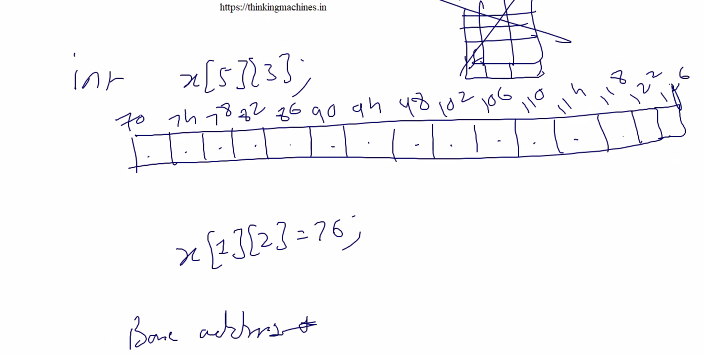 https://thinkingmachines.in
int x[5][3];
70 74 78 82 86 90 94 98 102 106 110 114 118 122 126
x[1][2]=76;
Base address